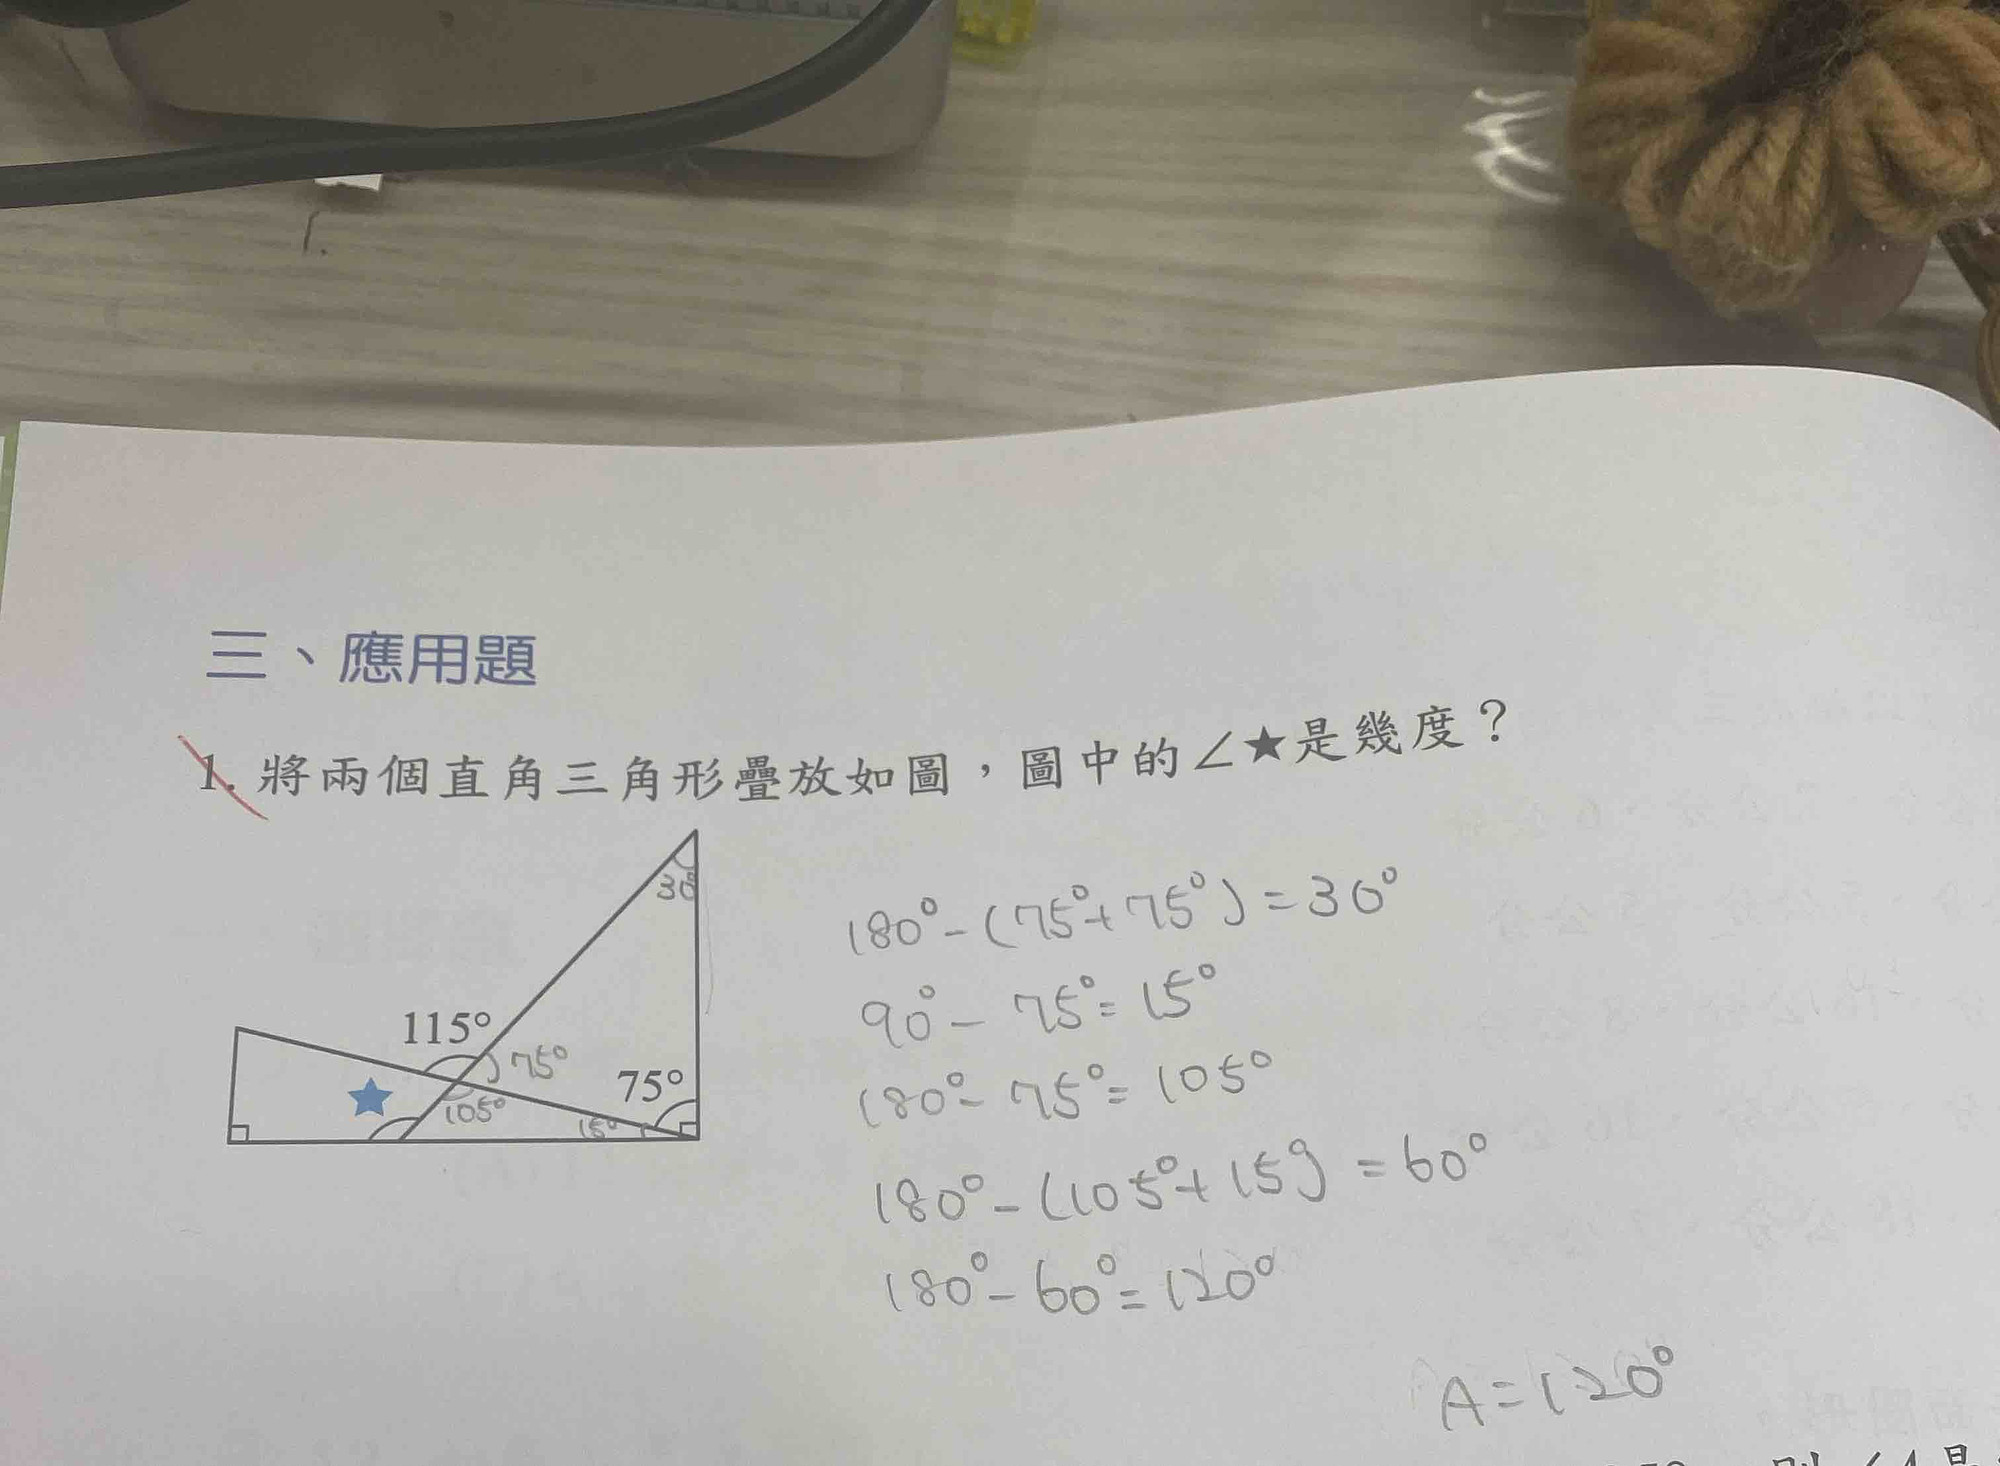 三、應用題
1. 將兩個直角三角形疊放如圖，圖中的∠★是幾度？
30°
115°
75°
75°
105°
15°
180°-(75°+75°)=30°
90°-75°=15°
180°-75°=105°
180°-(105°+15°)=60°
180°-60°=120°
A=120°